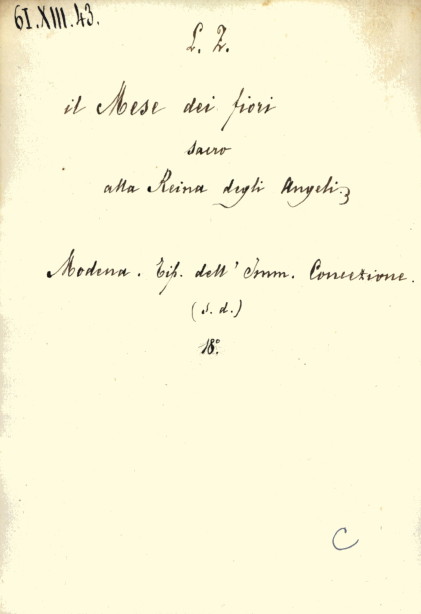 61.XIII.43.
L. Z.
il Mese dei fiori
sacro
alla Reina degli Angeli.
Modena. Tip. dell' Imm. Concezione.
(s. d.)
18°.
C